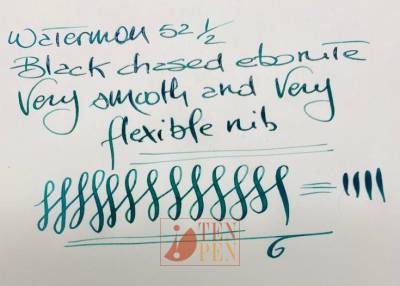 Waterman 52 1/2
Black chased ebonite
Very smooth and very
flexible nib
TEN
PEN
6